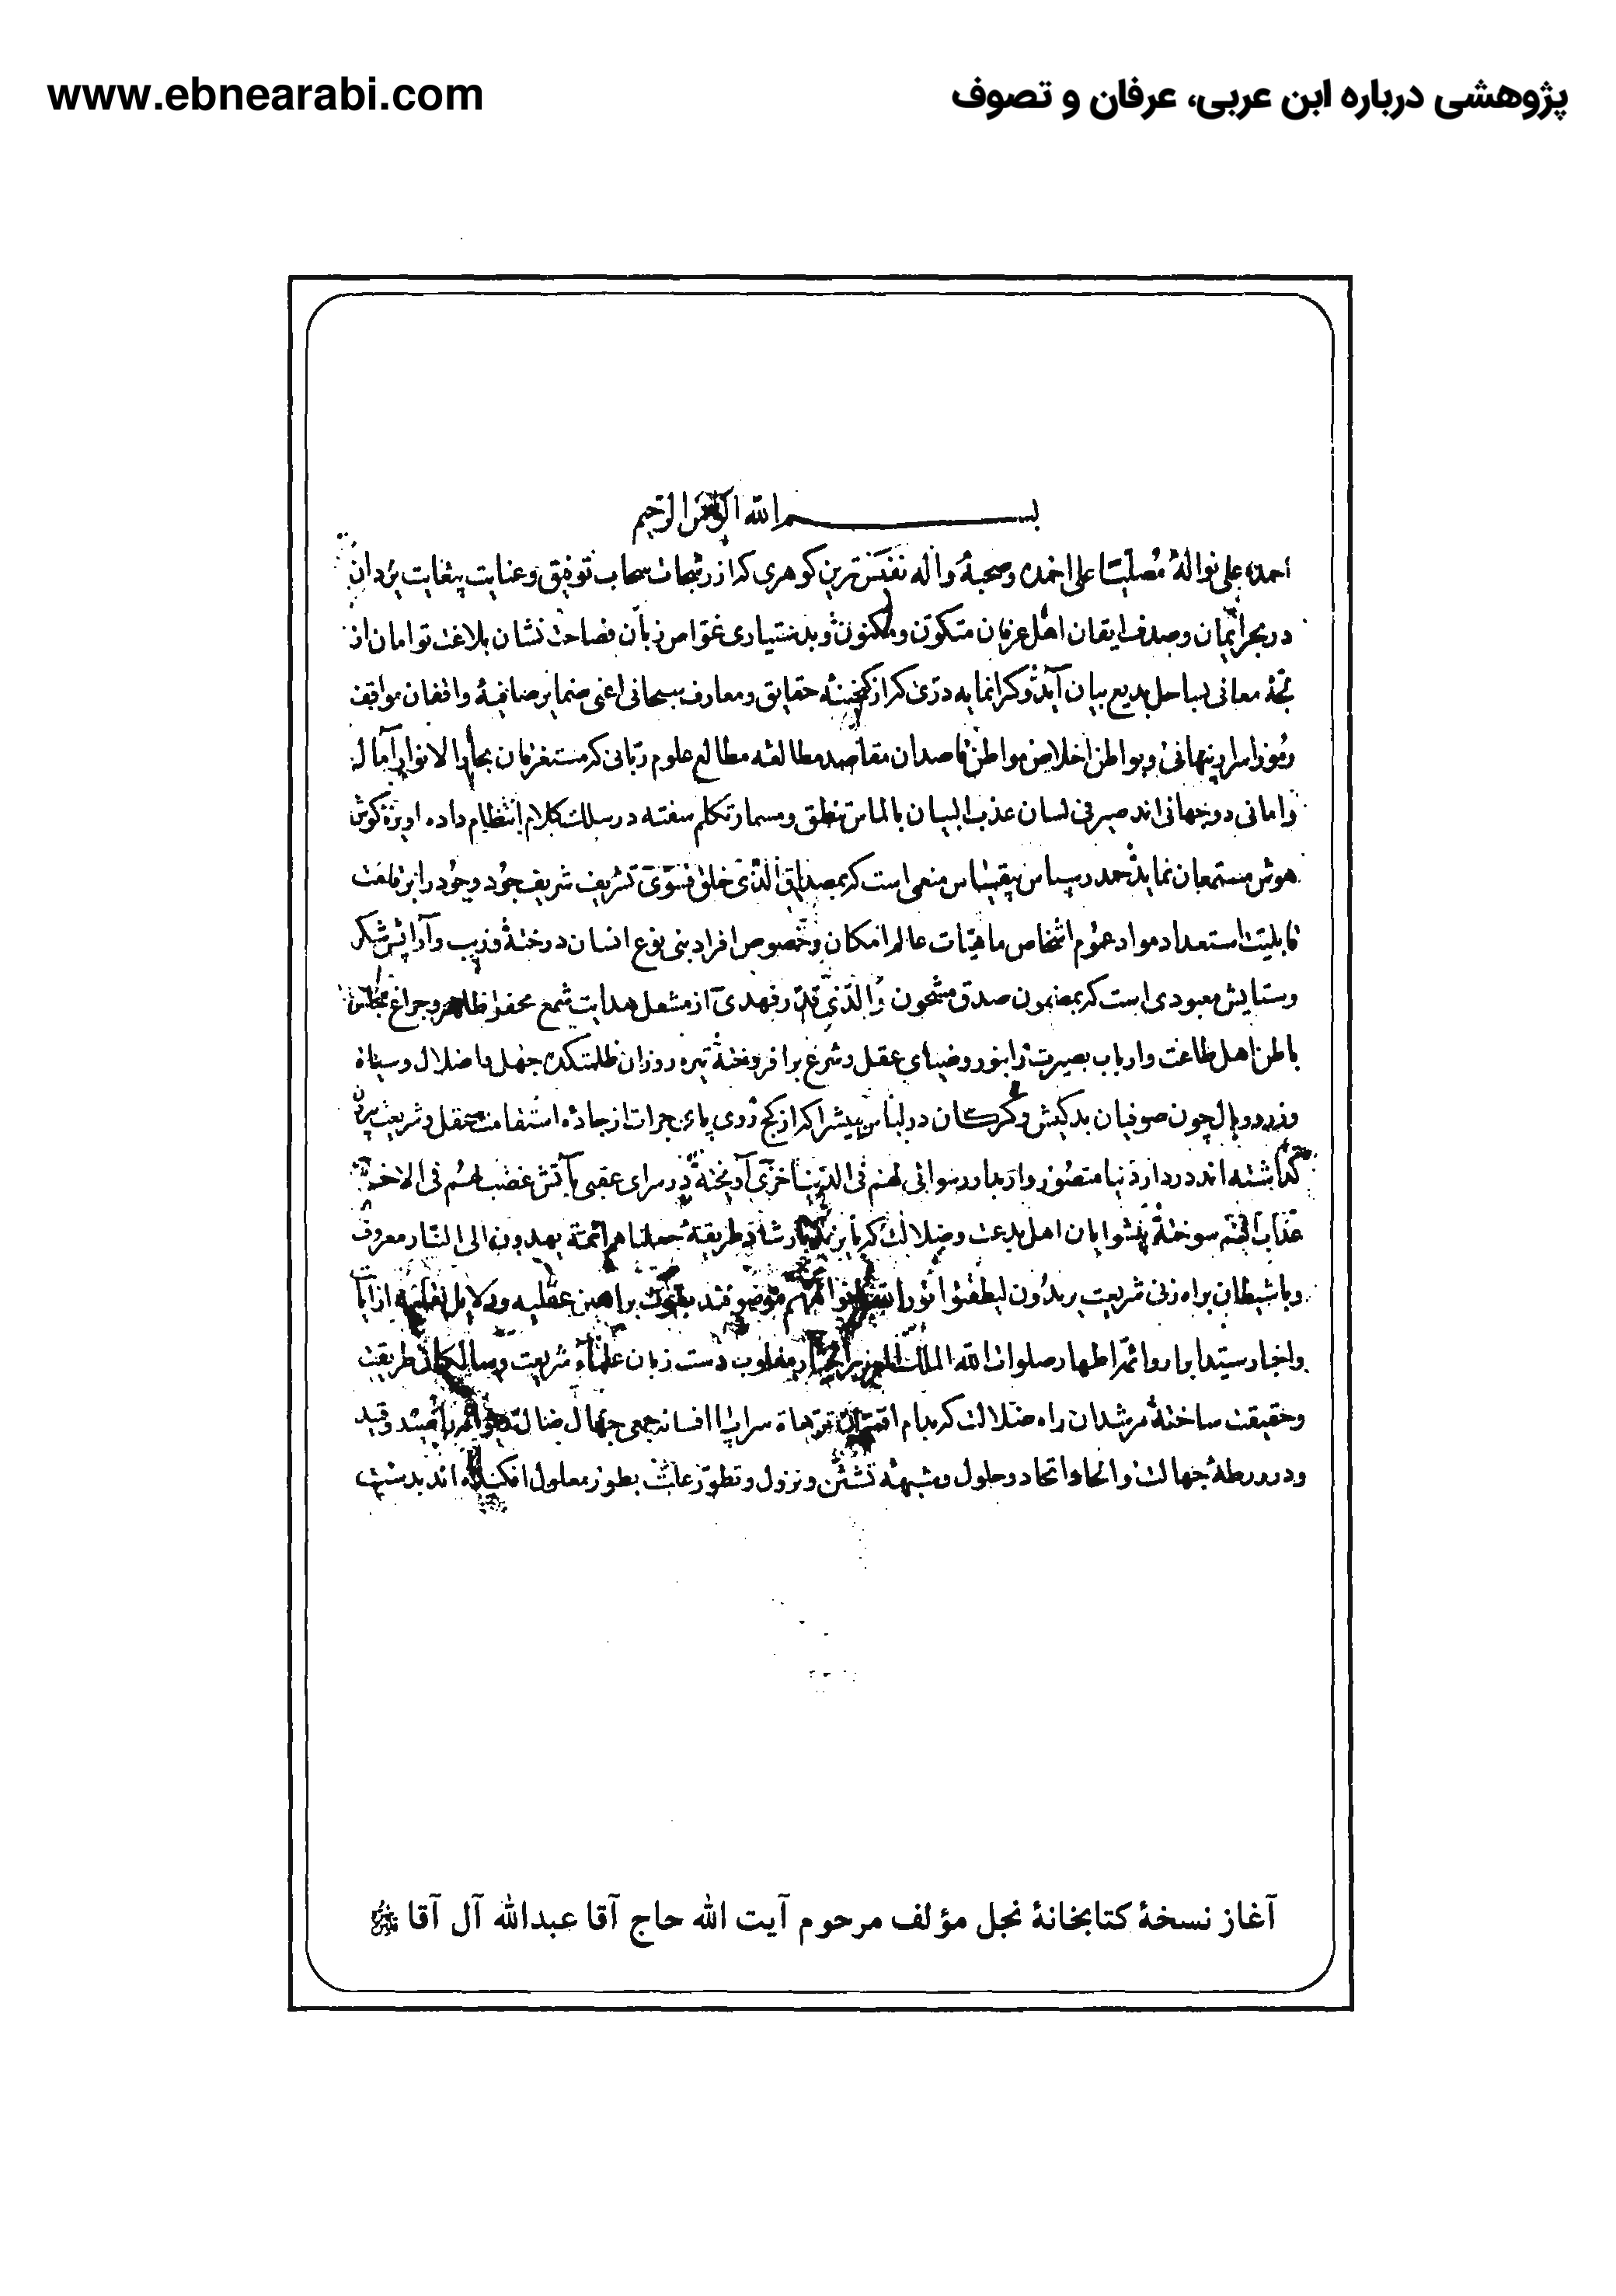 www.ebnearabi.com پژوهشی درباره ابن عربی، عرفان و تصوف
بسم الله الرحمن الرحیم
احمده علی نواله مصلیا علی احمده وصحبه واله نفیس ترین کوهری که از رشحات سحاب توفیق وعنایت بیغایت یزدان
در بحر ایمان وصدف ایقان اهل عرفان متکون ومکنون شود بدستیاری غواص زبان فصاحت نشان بلاغت توامان از
لجهٔ معانی بساحل بدیع بیان آید وکرانمایه درّی که از کنجینهٔ حقایق ومعارف سبحانی اعنی ضمایر صافیهٔ واقفان مواقف
رموز اسرار نهانی وبواطن اخلاص مواطن قاصدان مقاصد مطالعه مطالع علوم ربانی که مستغرقان بحار الانوار آمال
وامانی دوجهانی اند صیرفی لسان عذب البیان بالماس نطق ومسمار تکلم سفته در سلک کلام انتظام داده اویزهٔ کوش
هوش مستمعان نماید حمد وسپاس بیقیاس منعمی است که بمصداق الذی خلق فسوی تشریف شریف جود وجود را بر قامت
قابلیت استعداد مواد عموم اشخاص ماهیات عالم امکان وخصوص افراد بنی نوع انسان دوخته وزیب وآرایش شکر
وستایش معبودی است که بمضمون صدق مشحون والذی قدر فهدی از مشعل هدایت شمع محفو ظاهر وچراغ مجلس
باطن اهل طاعت وارباب بصیرت را بنور وضیای عقل وشرع برافروخته تیره روزان ظلمتکده جهل وضلال وسیاه
وزر ووبال چون صوفیان بدکیش وکرکان در لباس میش را که از کج روی پای جرات از جاده استقامت عقل وشریعت بیرون
کذاشته اند در دار دنیا منصور وار بدار رسوائی لهم فی الدنیا خزی آویخته ودر سرای عقبی بآتش غضب لهم فی الاخرة
عذاب الیم سوخته پیشوایان اهل بدعت وضلالت که بارشاد طریقهٔ جعلناهم ائمة یهدون الی النار معروف
وباشیطان براه زنی شریعت یریدون لیطفئوا نور الله بافواههم موصوفند بقوت براهین عقلیه ودلایل نقلیه از آیات
واخبار سید ابرار وائمه اطهار صلوات الله الملک مغلوب دست زبان علماء شریعت وسالکان طریقت
وحقیقت ساخته مرشدان راه ضلالت که بدام ترهات سراپا افسانه جمعی جهال ضال را صید وقید
ودر ورطهٔ جهالت والحاد واتحاد وحلول وشبهه تشئن ونزول وتطور علت بطور معلول افکنده اند بدستیاری
آغاز نسخهٔ کتابخانهٔ نجل مؤلف مرحوم آیت الله حاج آقا عبدالله آل آقا